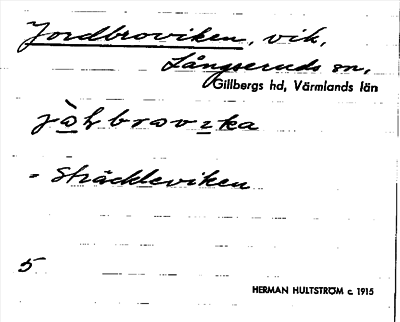 Jordbroviken, vik,
Långseruds sn,
Gillbergs hd, Värmlands län
= Sträckleviken
5
HERMAN HULTSTRÖM c. 1915